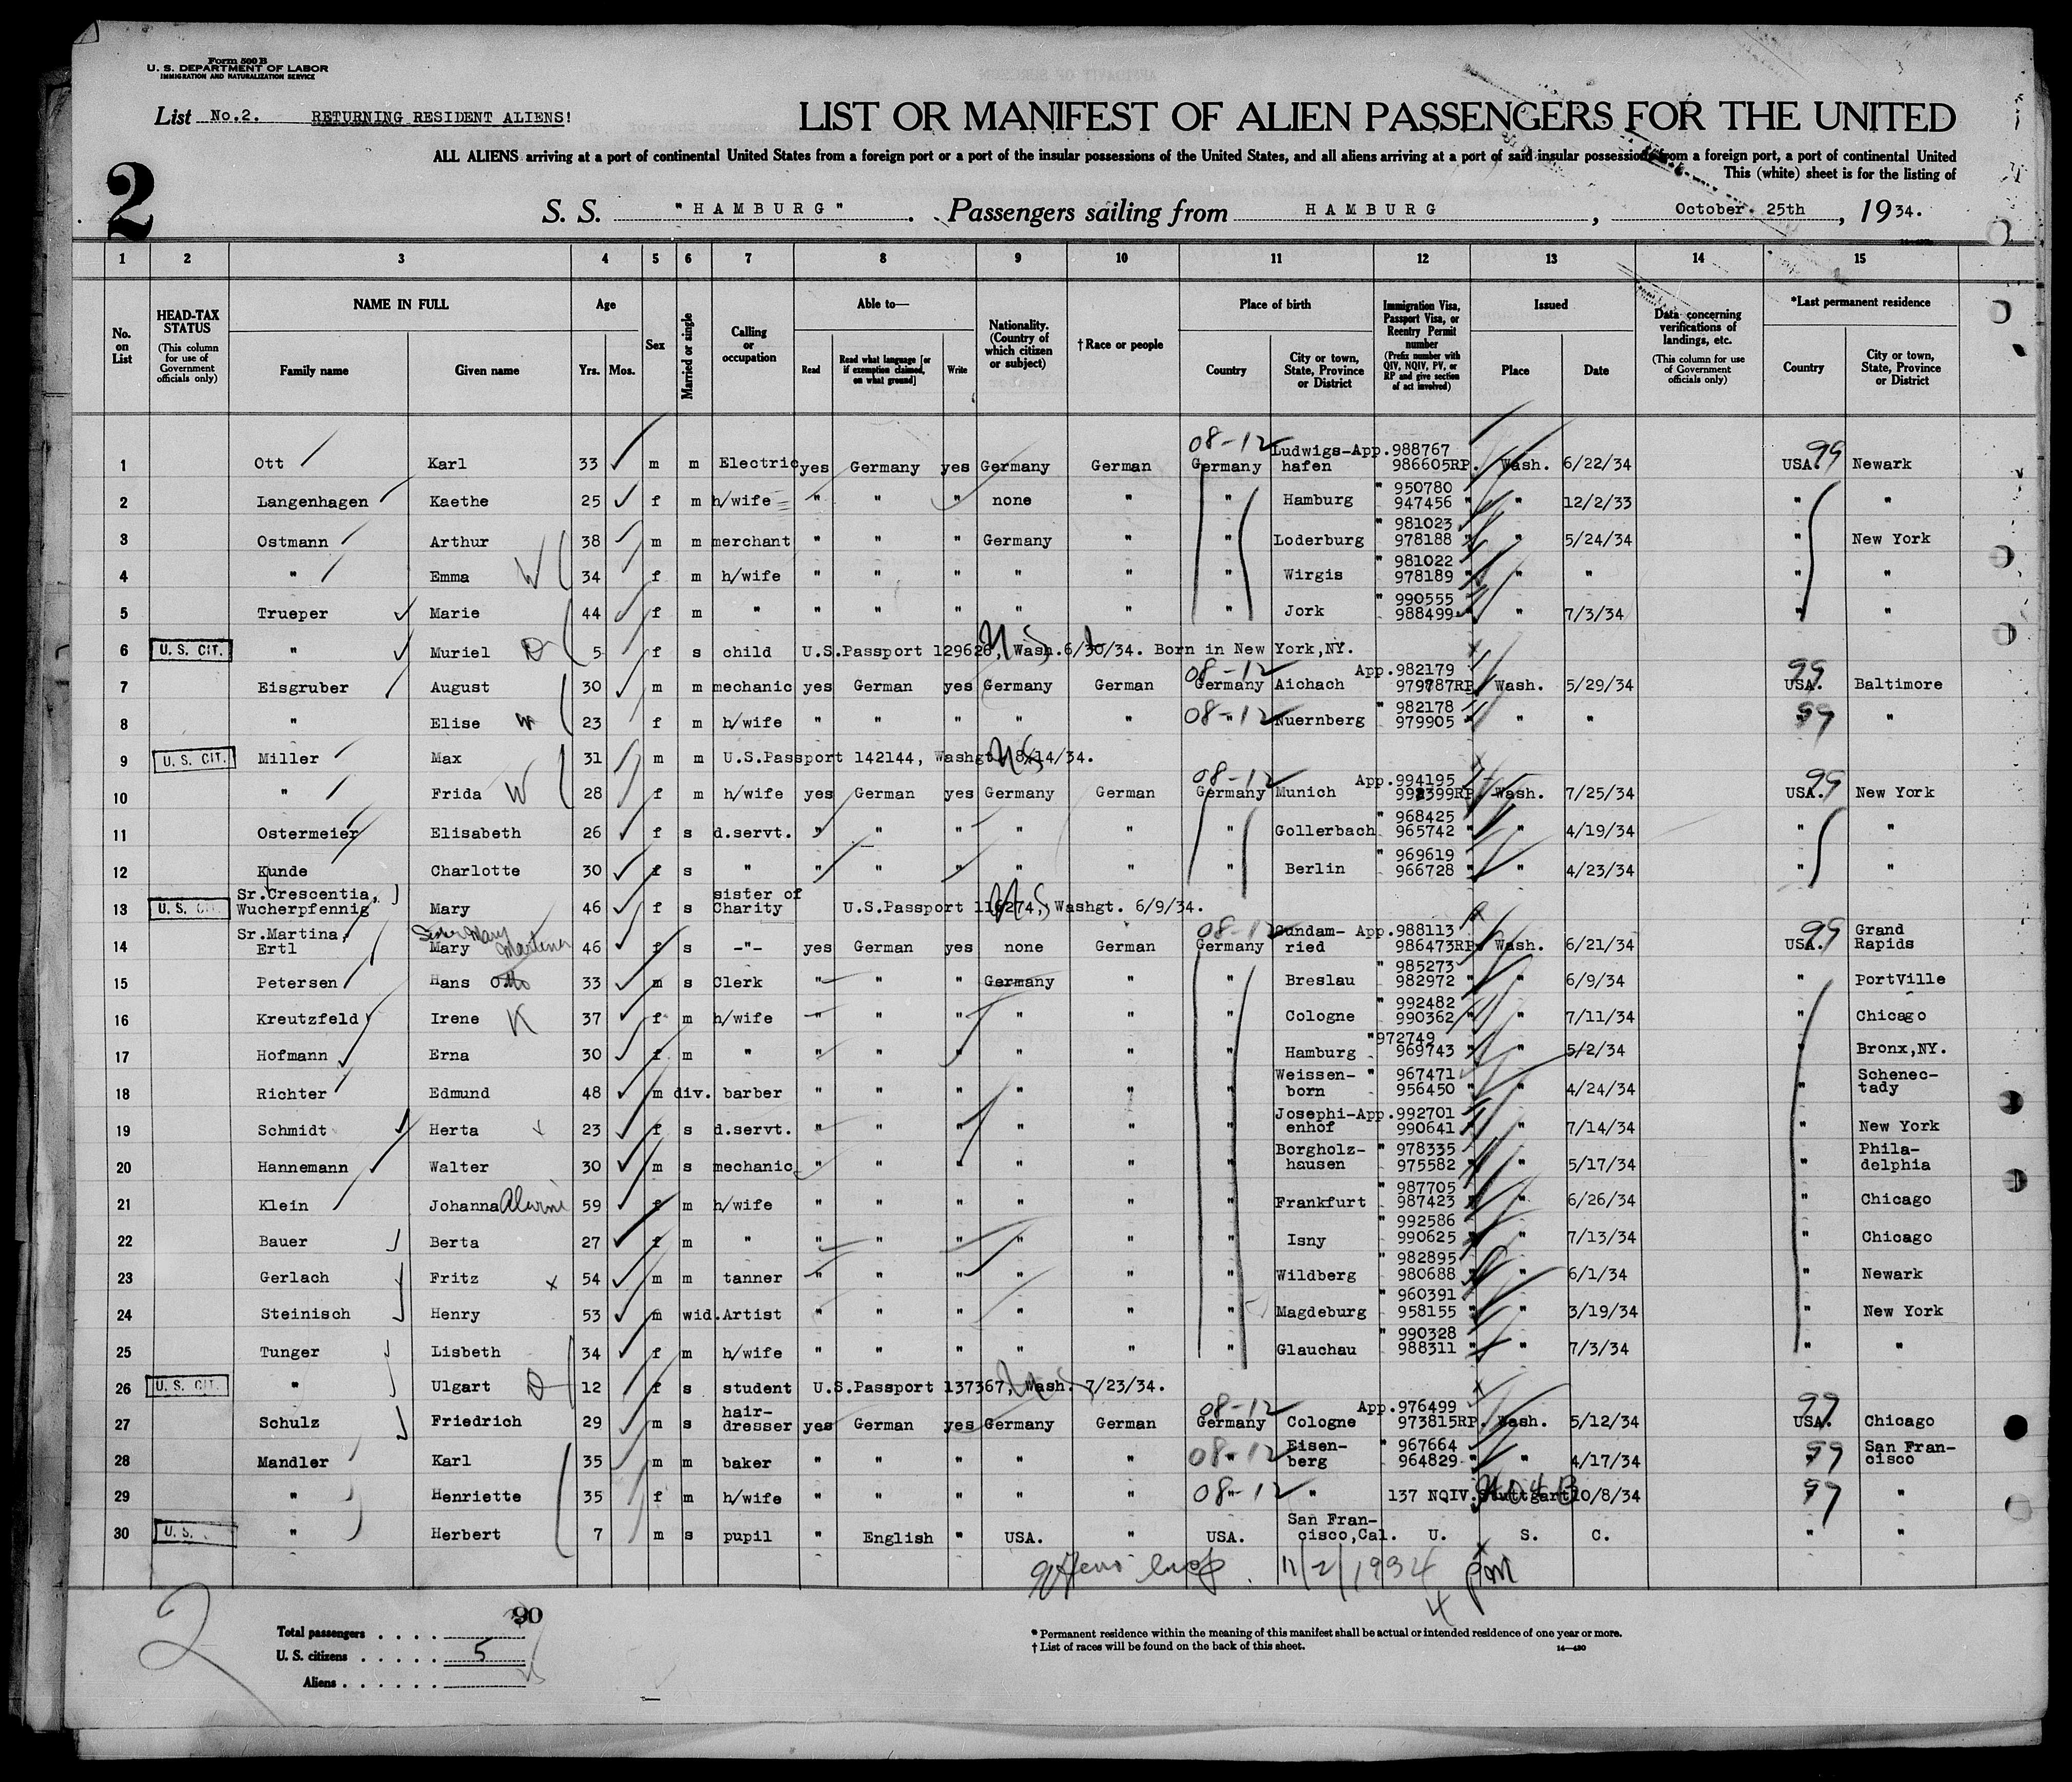 Form 500 B
U. S. DEPARTMENT OF LABOR
IMMIGRATION AND NATURALIZATION SERVICE
List No.2. RETURNING RESIDENT ALIENS!
LIST OR MANIFEST OF ALIEN PASSENGERS FOR THE UNITED
ALL ALIENS arriving at a port of continental United States from a foreign port or a port of the insular possessions of the United States, and all aliens arriving at a port of said insular possessions from a foreign port, a port of continental United
This (white) sheet is for the listing of
2
S. S. "HAMBURG" . Passengers sailing from HAMBURG , October 25th , 1934.
1 2 3 4 5 6 7 8 9 10 11 12 13 14 15
No. on List
HEAD-TAX STATUS (This column for use of Government officials only)
NAME IN FULL Family name Given name
Age Yrs. Mos.
Sex
Married or single
Calling or occupation
Able to— Read Read what language [or if exemption claimed, on what ground] Write
Nationality. (Country of which citizen or subject)
†Race or people
Place of birth Country City or town, State, Province or District
Immigration Visa, Passport Visa, or Reentry Permit number (Prefix number with QIV, NQIV, PV, or RP and give section of act involved)
Issued Place Date
Data concerning verifications of landings, etc. (This column for use of Government officials only)
*Last permanent residence Country City or town, State, Province or District
1 Ott Karl 33 m m Electric yes Germany yes Germany German 08-12 Germany Ludwigs-hafen App.988767 986605RP. Wash. 6/22/34 USA. 99 Newark
2 Langenhagen Kaethe 25 f m h/wife " " " none " " Hamburg " 950780 947456 " " 12/2/33 " "
3 Ostmann Arthur 38 m m merchant " " " Germany " " Loderburg " 981023 978188 " " 5/24/34 " New York
4 " Emma W 34 f m h/wife " " " " " " Wirgis " 981022 978189 " " " " "
5 Trueper Marie 44 f m " " " " " " " Jork " 990555 988499 " " 7/3/34 " "
6 U. S. CIT. " Muriel D 5 f s child U.S.Passport 129628, Wash.6/30/34. Born in New York,NY.
7 Eisgruber August 30 m m mechanic yes German yes Germany German 08-12 Germany Aichach App.982179 979787RP. Wash. 5/29/34 99 USA. Baltimore
8 " Elise W 23 f m h/wife " " " " " 08-12 " Nuernberg " 982178 979905 " " " 99 "
9 U. S. CIT. Miller Max 31 m m U.S.Passport 142144, Washgt. 8/14/34.
10 " Frida W 28 f m h/wife yes German yes Germany German 08-12 Germany Munich App.994195 992399RP. Wash. 7/25/34 99 USA. New York
11 Ostermeier Elisabeth 26 f s d.servt. " " " " " " Gollerbach " 968425 965742 " " 4/19/34 " "
12 Kunde Charlotte 30 f s " " " " " " " Berlin " 969619 966728 " " 4/23/34 " "
13 U. S. CIT. Sr.Crescentia, Wucherpfennig Mary 46 f s sister of Charity U.S.Passport 116274, Washgt. 6/9/34.
14 Sr.Martina, Ertl Mary Sister Mary Martina 46 f s -"- yes German yes none German 08-12 Germany Gundam-ried App.988113 986473RP. Wash. 6/21/34 99 USA. Grand Rapids
15 Petersen Hans Otto 33 m s Clerk " " " Germany " " Breslau " 985273 982972 " " 6/9/34 " PortVille
16 Kreutzfeld Irene K 37 f m h/wife " " " " " " Cologne " 992482 990362 " " 7/11/34 " Chicago
17 Hofmann Erna 30 f m " " " " " " " Hamburg " 972749 969743 " " 5/2/34 " Bronx,NY.
18 Richter Edmund 48 m div. barber " " " " " " Weissen-born " 967471 956450 " " 4/24/34 " Schenec-tady
19 Schmidt Herta 23 f s d.servt. " " " " " " Josephi-enhof App.992701 990641 " " 7/14/34 " New York
20 Hannemann Walter 30 m s mechanic " " " " " " Borgholz-hausen " 978335 975582 " " 5/17/34 " Phila-delphia
21 Klein Johanna 59 f m h/wife " " " " " " Frankfurt " 987705 987423 " " 6/26/34 " Chicago
22 Bauer Berta 27 f m " " " " " " " Isny " 992586 990625 " " 7/13/34 " Chicago
23 Gerlach Fritz x 54 m m tanner " " " " " " Wildberg " 982895 980688 " " 6/1/34 " Newark
24 Steinisch Henry 53 m wid. Artist " " " " " " Magdeburg " 960391 958155 " " 3/19/34 " New York
25 Tunger Lisbeth 34 f m h/wife " " " " " " Glauchau " 990328 988311 " " 7/3/34 " "
26 U. S. CIT. " Ulgart D 12 f s student U.S.Passport 137367, Wash. 7/23/34.
27 Schulz Friedrich 29 m s hair-dresser yes German yes Germany German 08-12 Germany Cologne App.976499 973815RP. Wash. 5/12/34 99 USA. Chicago
28 Mandler Karl 35 m m baker " " " " " 08-12 " Eisen-berg " 967664 964829 " " 4/17/34 99 San Fran-cisco
29 " Henriette 35 f m h/wife " " " " " 08-12 " " 137 NQIV. Stuttgart 10/8/34 99 "
30 U. S. " Herbert 7 m s pupil " English " USA. " USA. San Fran-cisco,Cal. U. S. C. " "
11/2/1934 4 pm
2
Total passengers . . . . 30
U. S. citizens . . . . . 5
Aliens . . . . . .
* Permanent residence within the meaning of this manifest shall be actual or intended residence of one year or more.
† List of races will be found on the back of this sheet. 14—430